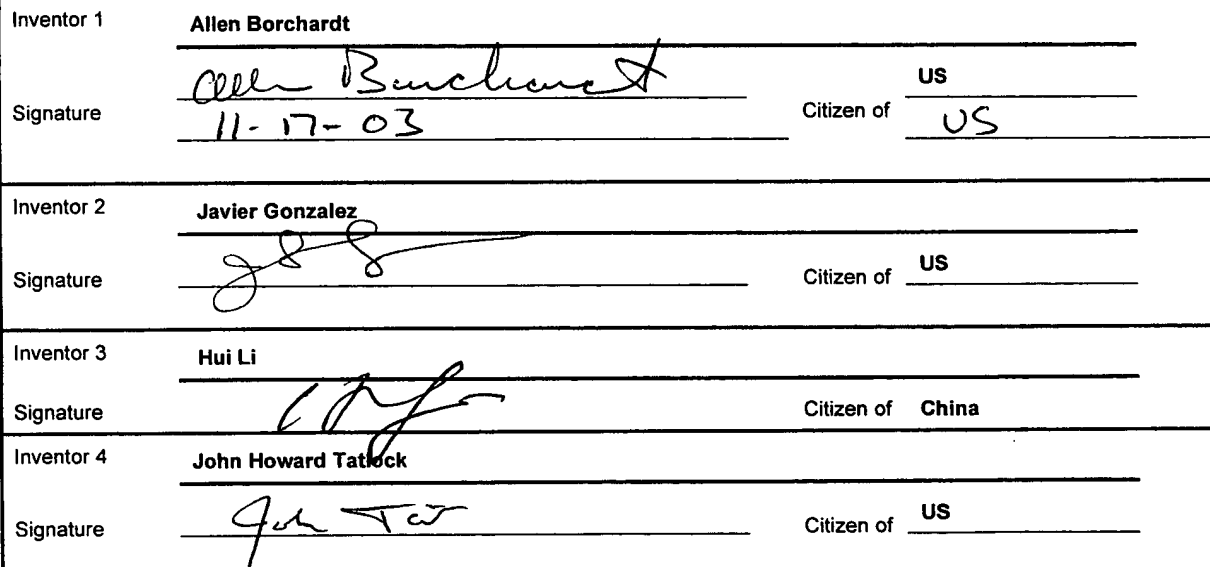 Inventor 1 Allen Borchardt
Allen Borchardt US
Signature Citizen of
11-17-03 US
Inventor 2 Javier Gonzalez
Signature Citizen of US
Inventor 3 Hui Li
Signature Citizen of China
Inventor 4 John Howard Tatlock
Signature John Tat Citizen of US